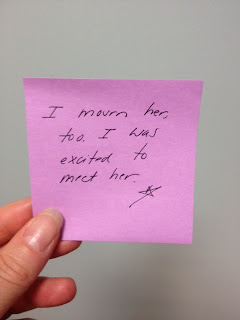 I mourn her,
too. I was
excited to
meet her.